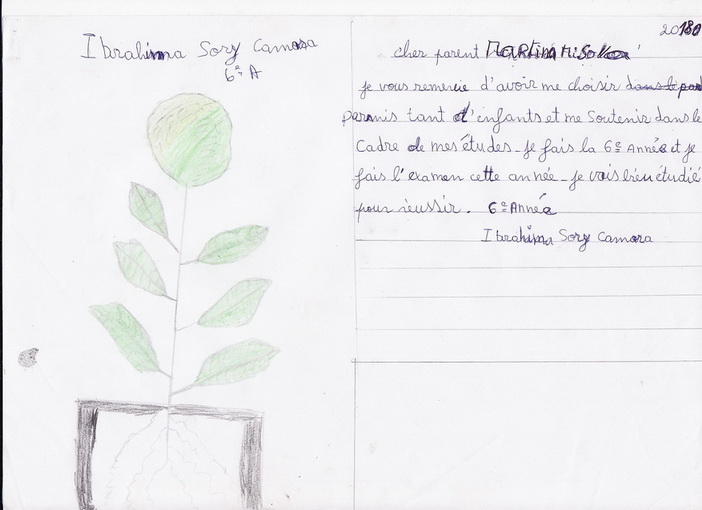 Ibrahima Sory Camara
6e A
20180
cher parent Martina
je vous remercie d'avoir me choisir dans le par
parmis tant d'enfants et me soutenir dans le
Cadre de mes études - je fais la 6e Année et je
fais l'examen cette année - je vais bien étudié
pour réussir. 6e Année
Ibrahima Sory Camara